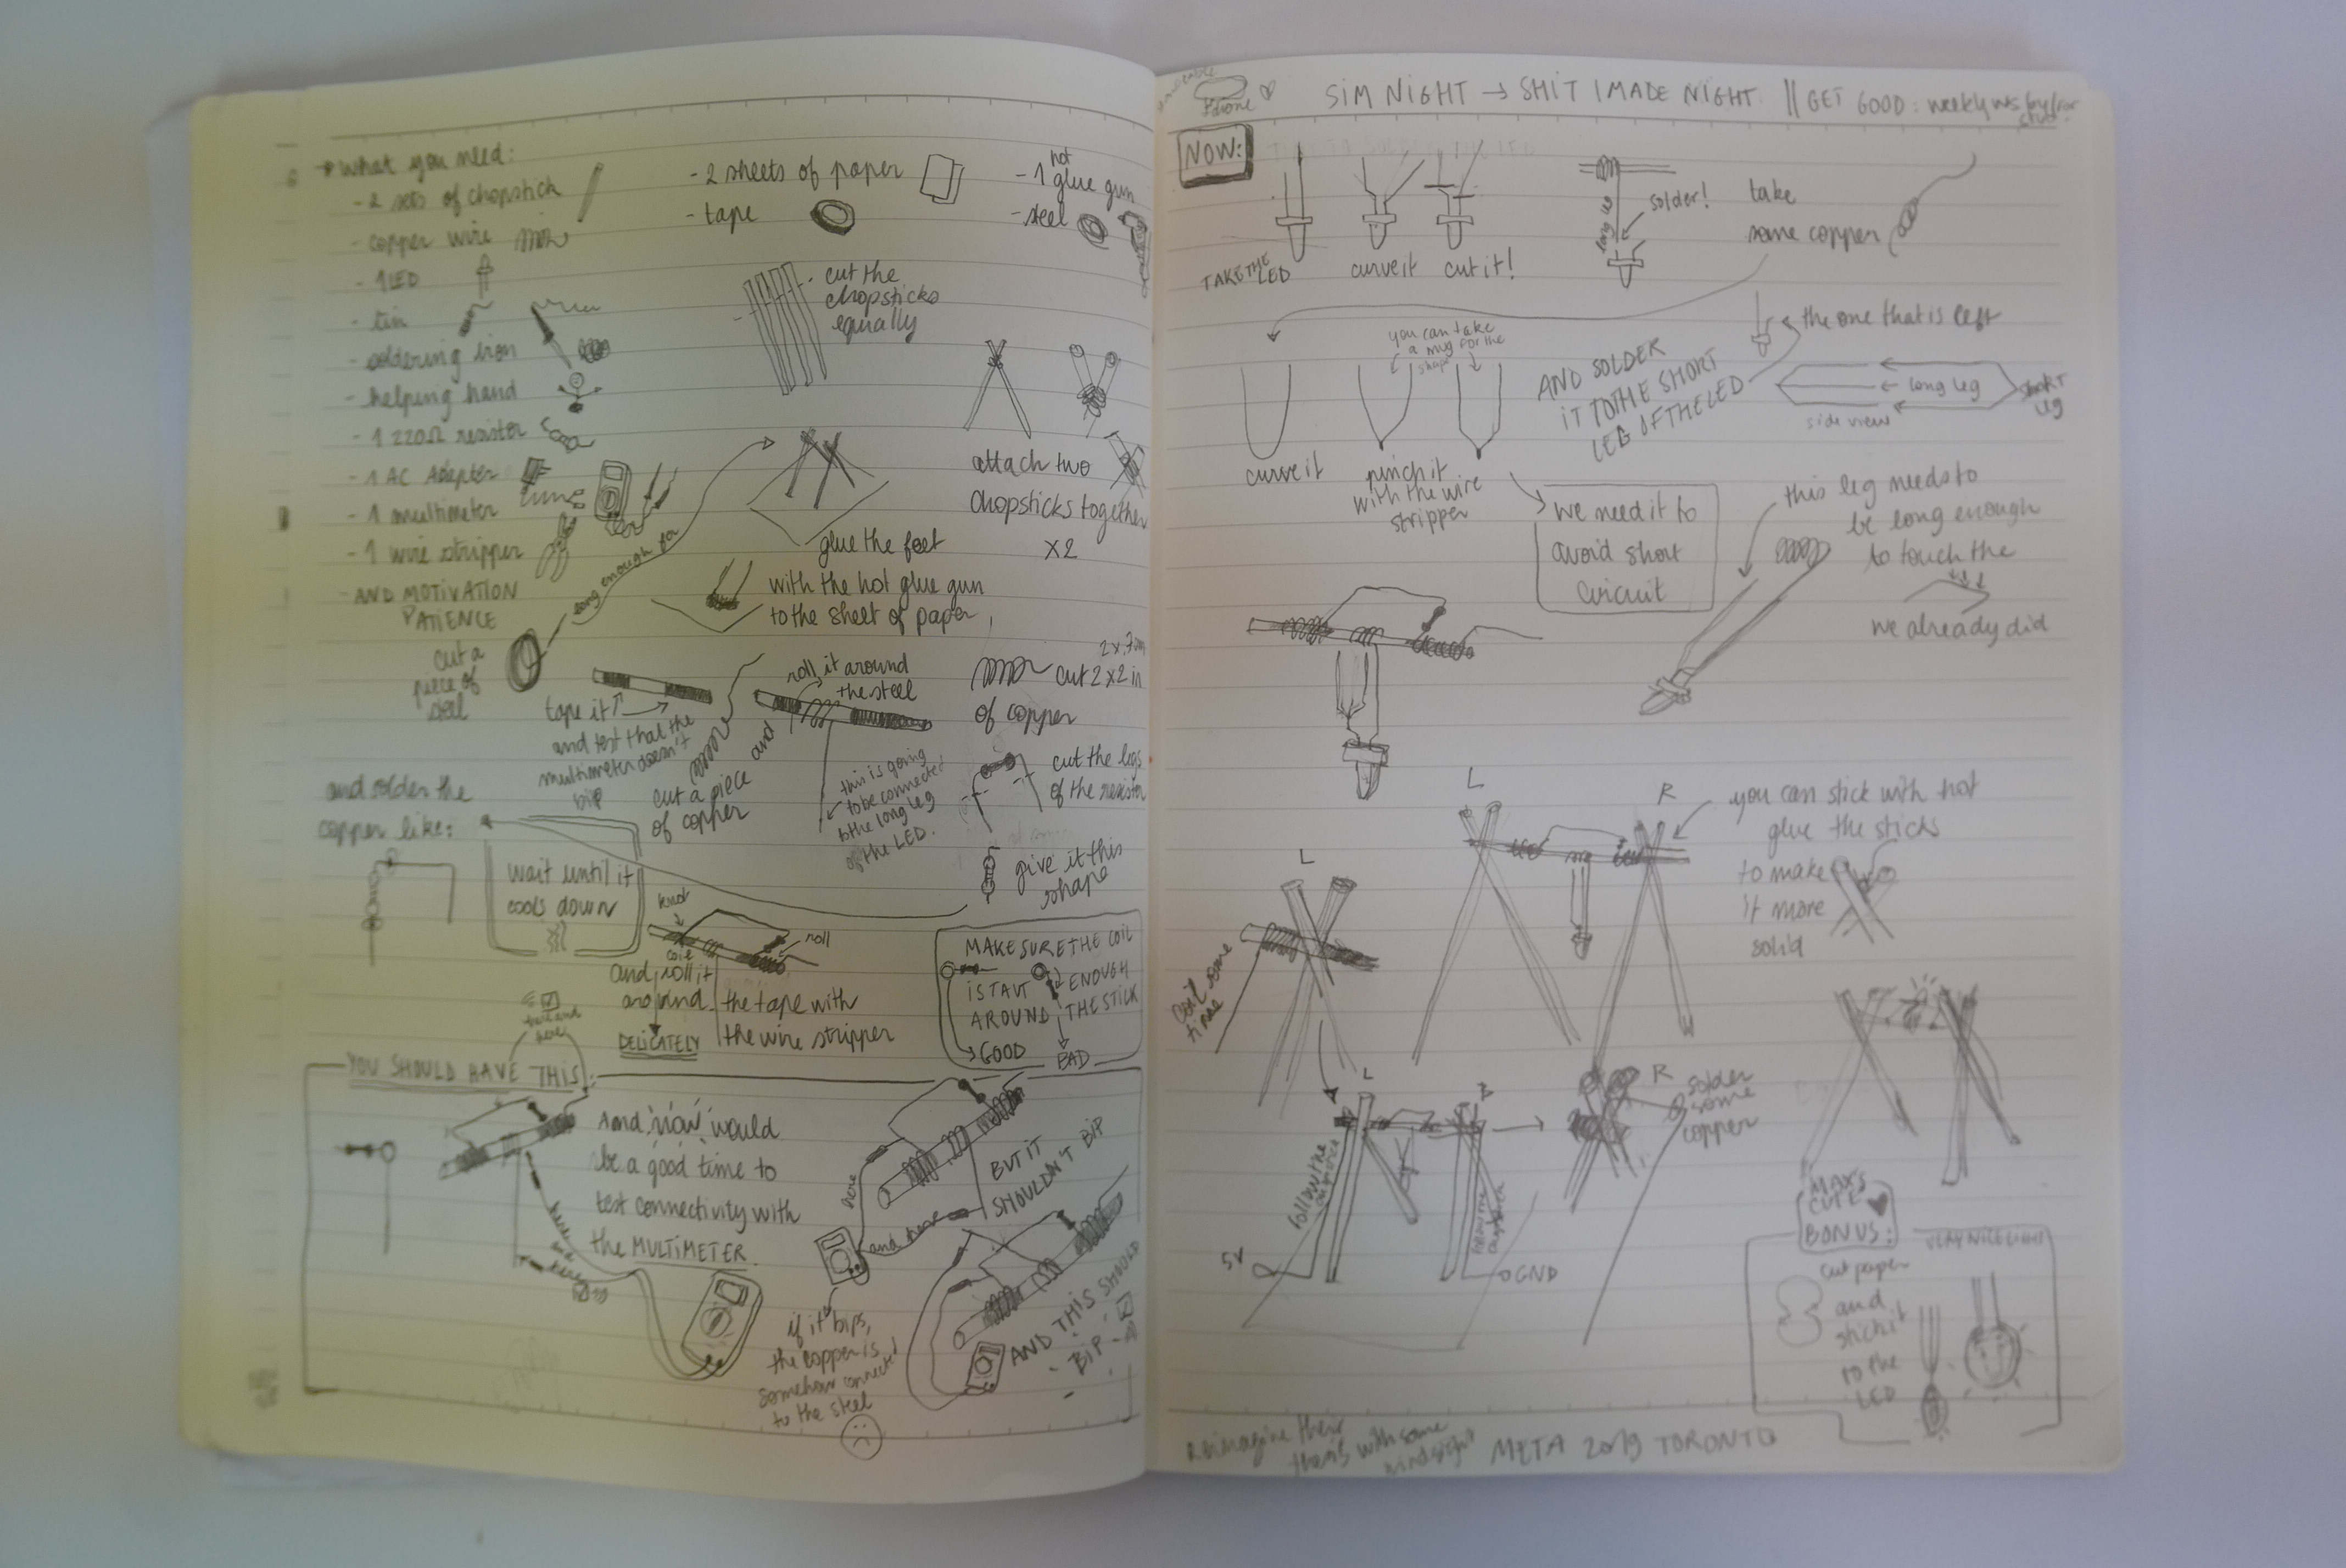 * What you need:
- 2 sets of chopstick
- copper wire
- 1 LED
- tin
- soldering iron
- helping hand
- 1 220Ω resistor
- 1 AC Adapter
- 1 multimeter
- 1 wire stripper
- AND MOTIVATION
PATIENCE
- 2 sheets of paper
- tape
- 1 hot glue gun
- steel
cut the
chopsticks
equally
attach two
chopsticks together
x2
glue the feet
with the hot glue gun
to the sheet of paper
long enough for
cut a
piece of
steel
tape it
and test that the
multimeter doesn't
bip
cut a piece
of copper
and
roll it around
the steel
this is going
to be connected
to the long leg
of the LED.
cut 2 x 2 in
of copper
cut the legs
of the resistor
give it this
shape
and solder the
copper like:
wait until it
cools down
knot
coil
roll
and roll it
around the tape with
DELICATELY the wire stripper
MAKE SURE THE COIL
IS TAUT ENOUGH
AROUND THE STICK
GOOD
BAD
YOU SHOULD HAVE THIS:
And now would
be a good time to
test connectivity with
the MULTIMETER.
here
and here
here
and here
BUT IT
SHOULDN'T BIP
if it bips,
the copper is
somehow connected
to the steel
AND THIS SHOULD
- BIP -
Phone
SIM NIGHT → SHIT I MADE NIGHT || GET GOOD: weekly ws by/for
stuff
NOW:
TAKE THE
LED
curve it
cut it!
long leg
solder!
take
some copper
curve it
you can take
a mug for the
shape
pinch it
with the wire
stripper
AND SOLDER
IT TO THE SHORT
LEG OF THE LED
the one that is left
long leg
short
leg
side view
we need it to
avoid short
circuit
this leg needs to
be long enough
to touch the
we already did
L
R
you can stick with hot
glue the sticks
to make
it more
solid
L
coil some
time
L
R
follow the
5V
GND
R
solder
some
copper
MAX'S
CUTE
BONUS:
VERY NICE LIGHT
cut paper
and
stick it
to the
LED
reimagine their
thesis with some
hindsight
META 2019 TORONTO